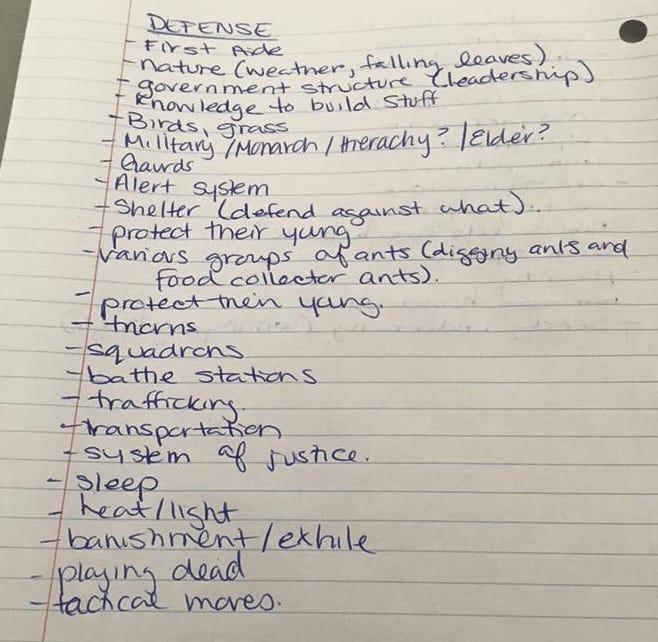 DEFENSE
- First Aide
- nature (weather, falling leaves)
- government structure (leadership)
- knowledge to build stuff
- Birds, grass
- Military / Monarch / Hierachy? / Elder?
- Gaurds
- Alert system
- Shelter (defend against what).
- protect their yung
- various groups of ants (digging ants and
food collector ants).
- protect their yung.
- thorns
- squadrons
- bathe stations
- trafficking.
- transportation
- system of justice.
- sleep
- heat/light
- banishment/exhile
- playing dead
- tactical moves.